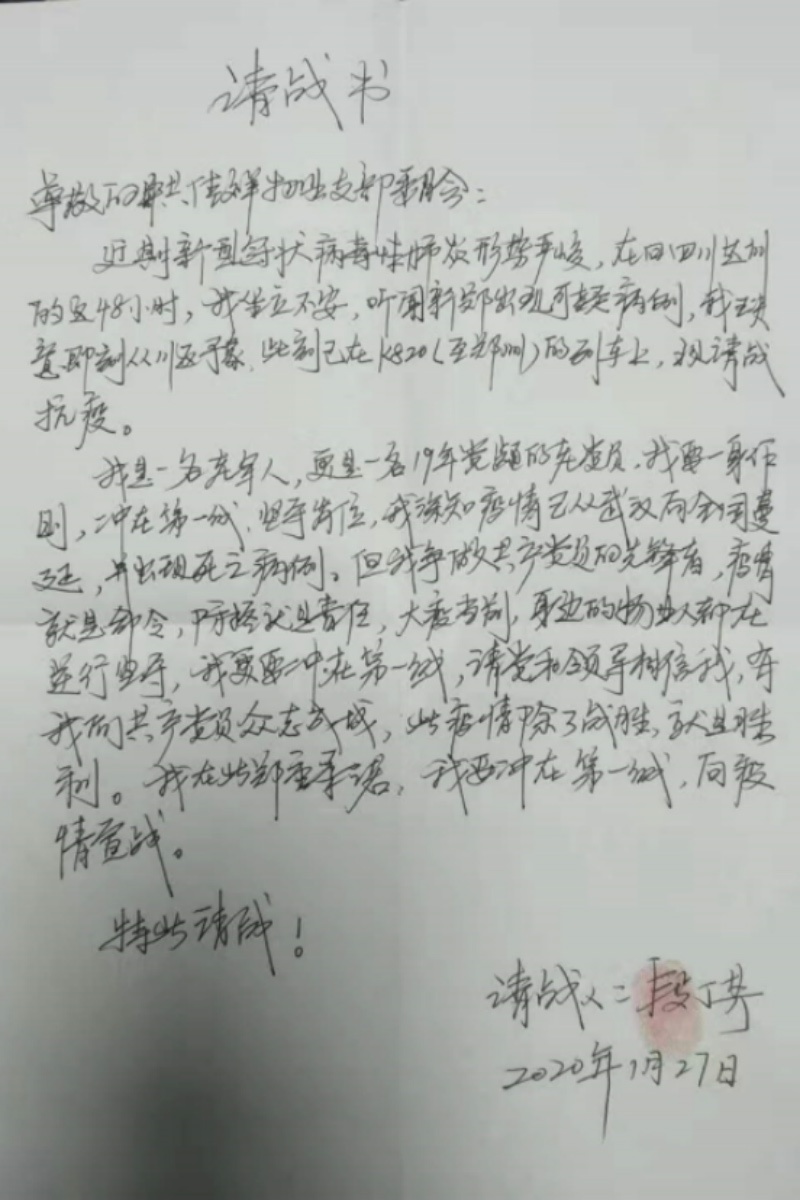 请战书
尊敬的中共佳祥物业支部委员会：
近期新型冠状病毒性肺炎形势严峻，在回四川达州
的这48小时，我坐立不安，听闻新郑出现可疑病例，我
即刻从川返豫，此刻已在K820(至郑州)的列车上，现请战
抗疫。
我是一名老军人，更是一名19年党龄的老党员，我要一身作
则，冲在第一线，坚守岗位，我深知疫情已从武汉向全国蔓
延，并出现死亡病例。但我争做共产党员的先锋者，疫情
就是命令，防控就是责任，大疫当前，身边的物业人都在
逆行坚守，我更要冲在第一线，请党和领导相信我，有
我们共产党员众志成城，此疫情除了战胜，就是胜
利。我在此郑重承诺，我要冲在第一线，向疫
情宣战。
特此请战！
请战人：段丁
2020年1月27日